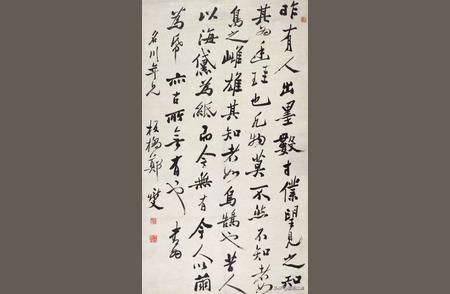 昨有人出墨數寸僕望見之知
其為廷珪也凡物莫不然不知者如
烏之雌雄其知者如烏鵲也昔人
以海為紙而今無有今人以
為帋亦古所無有也
名川年兄 板橋鄭燮